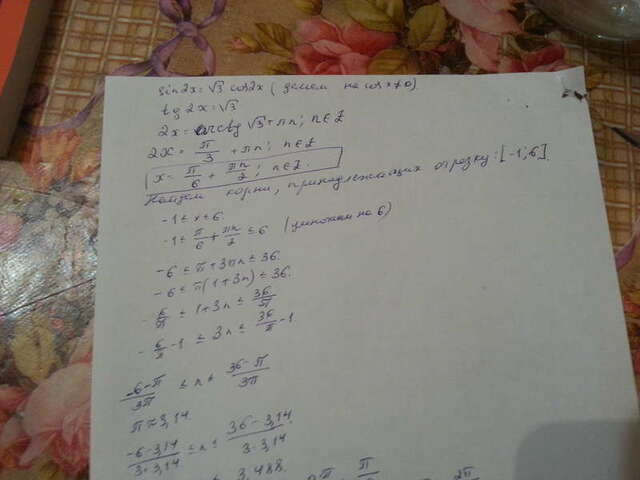 sin2x = √3 cos2x (делим на cosx≠0)
tg 2x = √3
2x = arctg √3 + πn; n∈Z
2x = π/3 + πn; n∈Z
x = π/6 + πn/2; n∈Z.
Найдем корни, принадлежащих отрезку: [-1; 6].
-1 ≤ x ≤ 6.
-1 ≤ π/6 + πn/2 ≤ 6 (умножим на 6)
-6 ≤ π + 3πn ≤ 36.
-6 ≤ π(1+3n) ≤ 36.
-6/π ≤ 1+3n ≤ 36/π
-6/π - 1 ≤ 3n ≤ 36/π - 1
-6-π/3π ≤ n ≤ 36-π/3π
π ≈ 3,14.
-6-3,14/3·3,14 ≤ n ≤ 36-3,14/3·3,14
≤ 3,488.